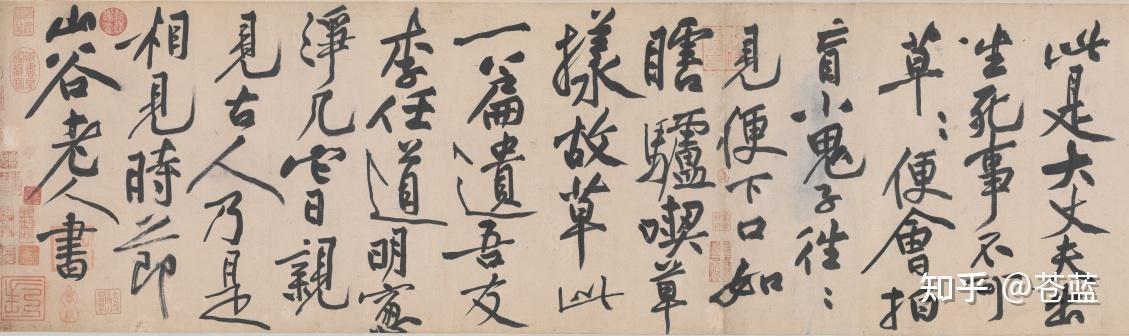 此是大丈夫出
生死事不可
草〻便會拍
盲小鬼子往〻
見便下口如
瞎驢喫草
樣故草此
一篇遺吾友
李任道明窓
淨几它日親
見古人乃是
相見時節
山谷老人書
知乎 @苍蓝